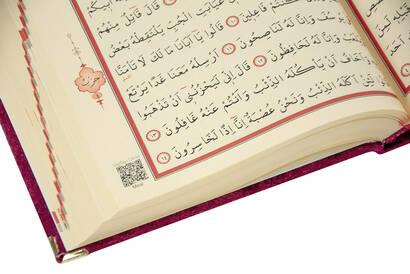 اَبٖيكُمْ
قَالَ قَٓائِلٌ مِنْهُمْ
غَيَابَتِ الْجُبِّ يَلْتَقِطْهُ بَعْضُ
كُنْتُمْ فَاعِلٖينَ ﴿١٠﴾ قَالُوا يَٓا اَبَانَا مَا لَكَ لَا تَاْمَنَّا
سُفَ وَاِنَّا لَهُ لَنَاصِحُونَ ﴿١١﴾ اَرْسِلْهُ مَعَنَا غَدًا يَرْتَعْ
وَاِنَّا لَهُ لَحَافِظُونَ ﴿١٢﴾ قَالَ اِنّٖي لَيَحْزُنُنٖٓي اَنْ تَذْهَبُوا
وَاَخَافُ اَنْ يَاْكُلَهُ الذِّئْبُ وَاَنْتُمْ عَنْهُ غَافِلُونَ ﴿١٣﴾
لَئِنْ اَكَلَهُ الذِّئْبُ وَنَحْنُ عُصْبَةٌ اِنَّٓا اِذًا لَخَاسِرُونَ ﴿١٤﴾